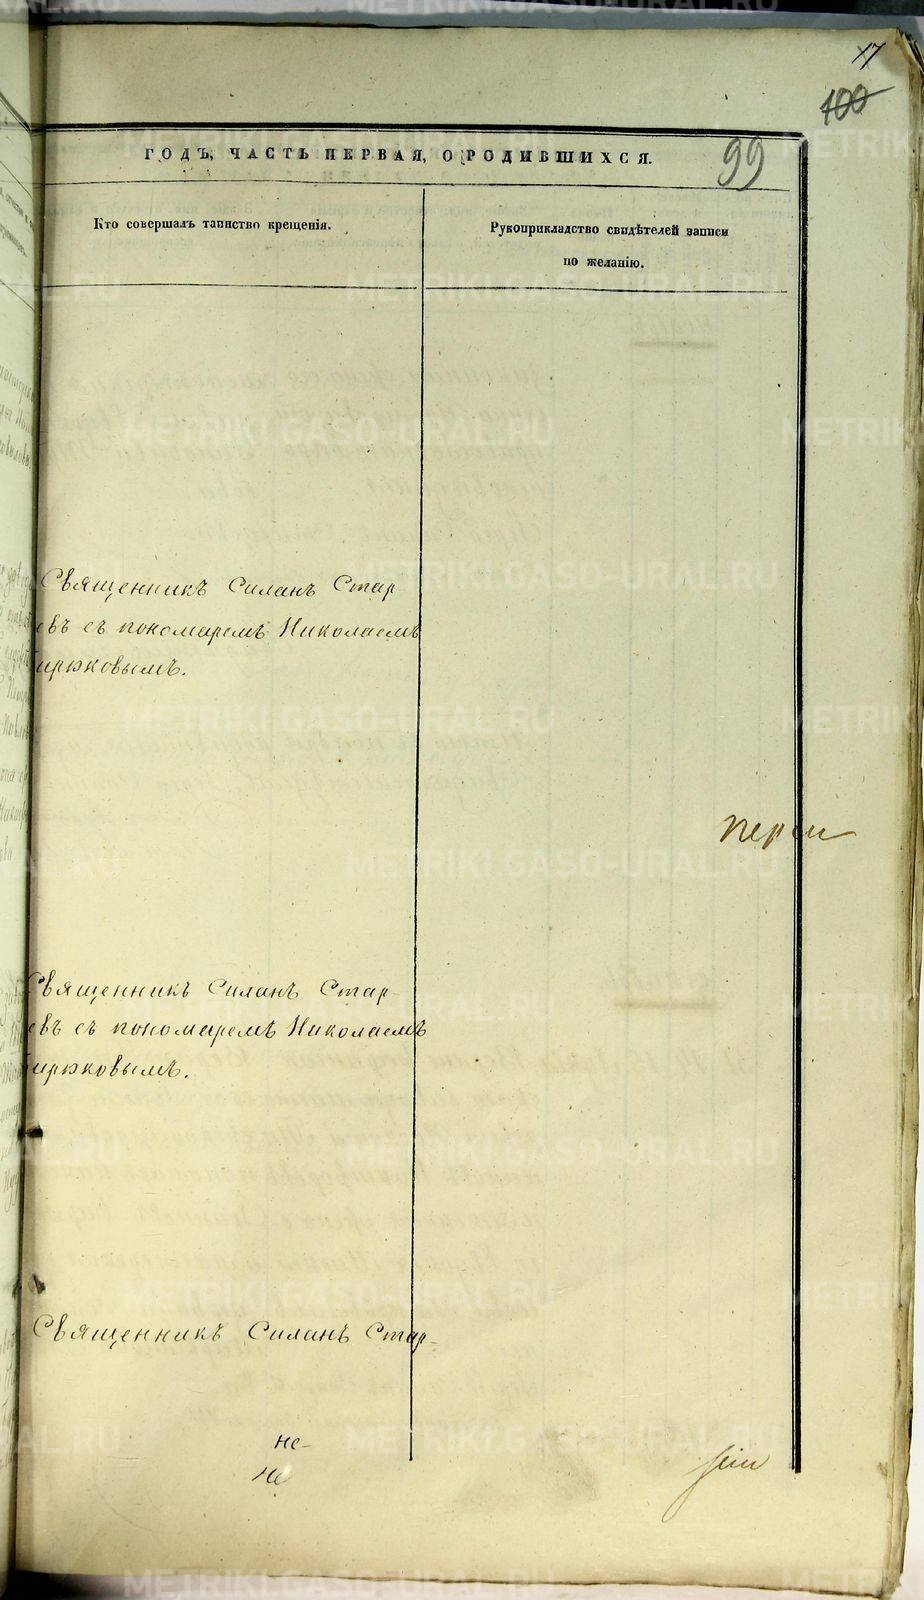 17
100
99
ГОДЪ, ЧАСТЬ ПЕРВАЯ, О РОДИВШИХСЯ.
Кто совершалъ таинство крещенія.
Рукоприкладство свидѣтелей записи
по желанію.
Священникъ Силанъ Стар
евъ съ пономаремъ Николаемъ
ирюковымъ.
Священникъ Силанъ Стар-
евъ съ пономаремъ Николаемъ
ирюковымъ.
Священникъ Силанъ Стар-
не-
не
METRIKI.GASO-URAL.RU